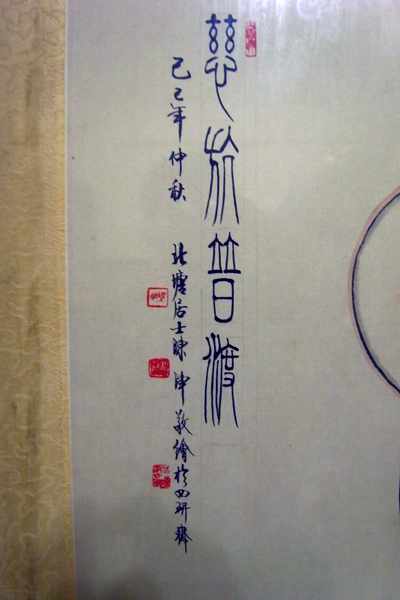 慈航普渡
己巳年仲秋 北塘居士陳 敬繪於四研齋